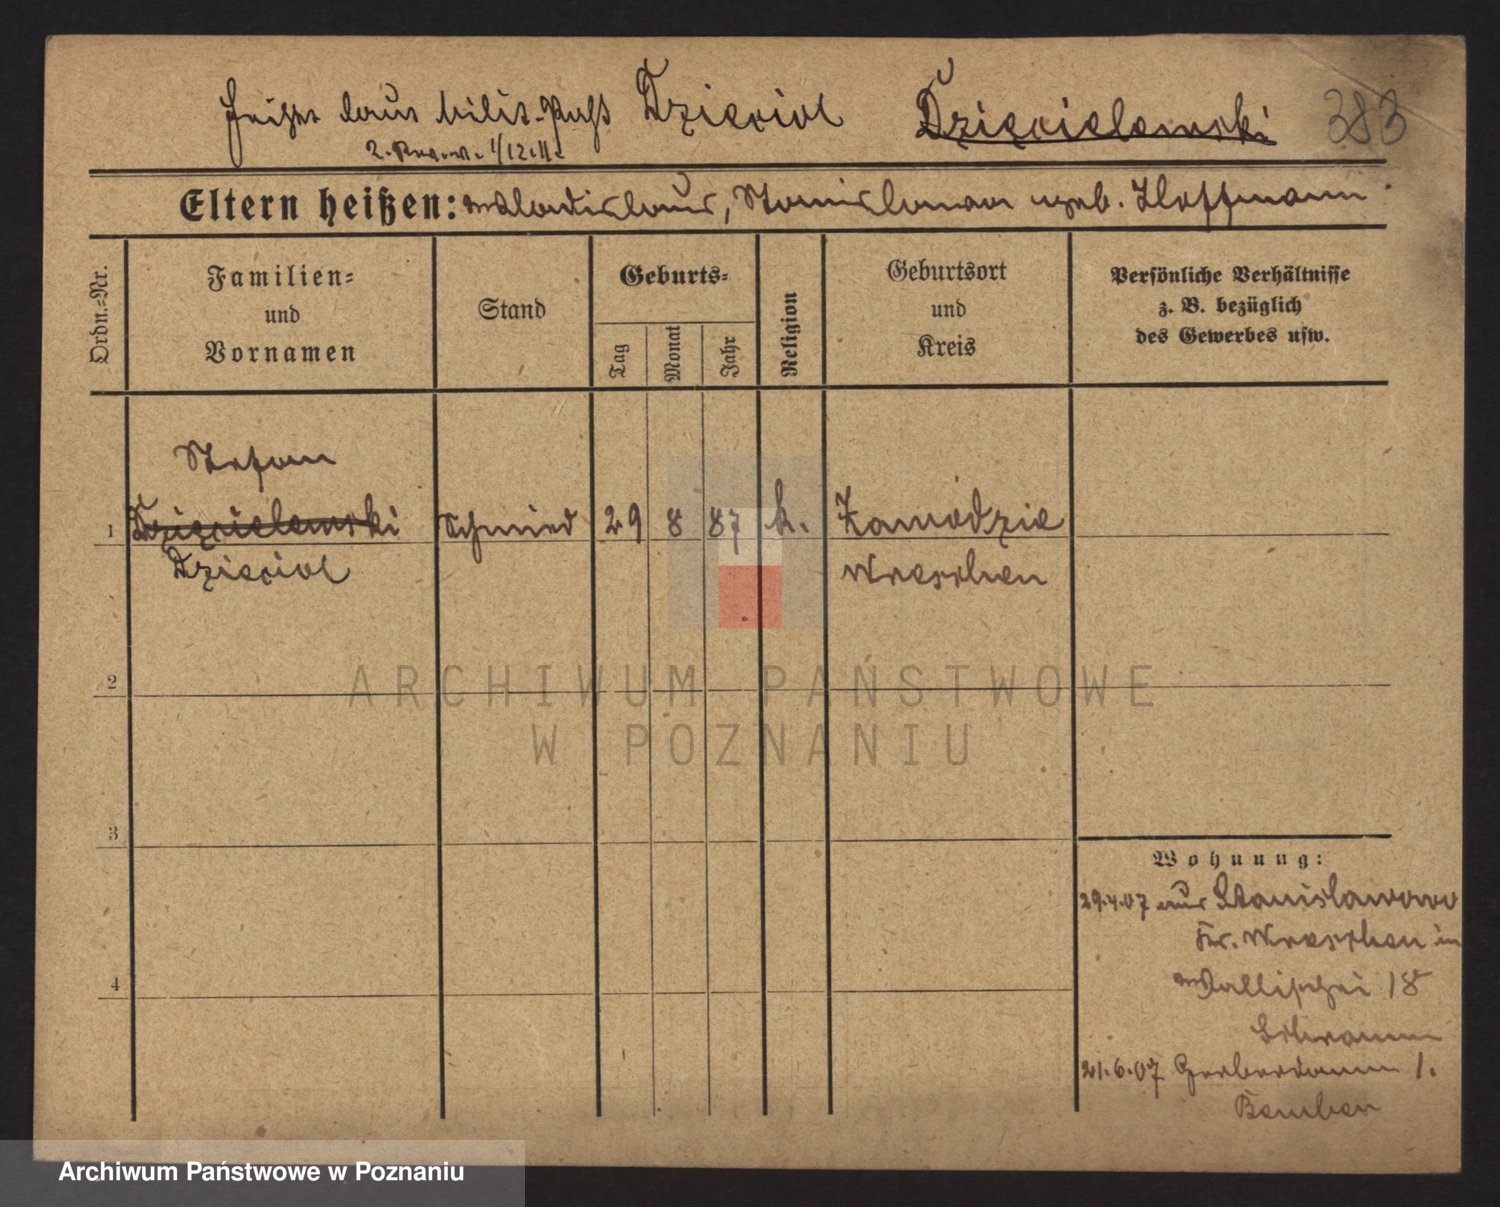 heißt laut Milit.-Paß Dzieciol Dziecielewski 383
Eltern heißen: Wladislaus, Stanislawa geb. Hoffmann
Ordn.-Nr.
Familien-
und
Vornamen
Stand
Geburts-
Tag
Monat
Jahr
Religion
Geburtsort
und
Kreis
Persönliche Verhältnisse
z. B. bezüglich
des Gewerbes usw.
Stefan
1 Dziecielewski Schmied 29 8 87 k. Zawodzie
Dzieciol Wreschen
2
3
4
Wohnung:
29.4.07 aus Stanislawowo
Kr. Wreschen in
Wallischei 18
Schramm
21.6.07 Gerberdamm 1.
ARCHIWUM PAŃSTWOWE
W POZNANIU
Archiwum Państwowe w Poznaniu